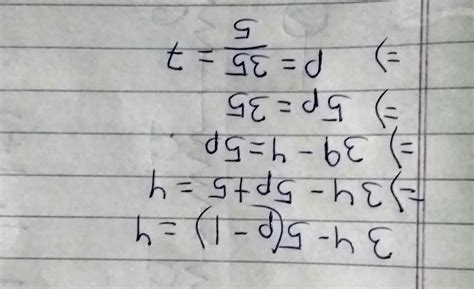 34 - 5(p - 1) = 4
=) 34 - 5p + 5 = 4
=) 39 - 4 = 5p
=) 5p = 35
=) p = 35/5 = 7